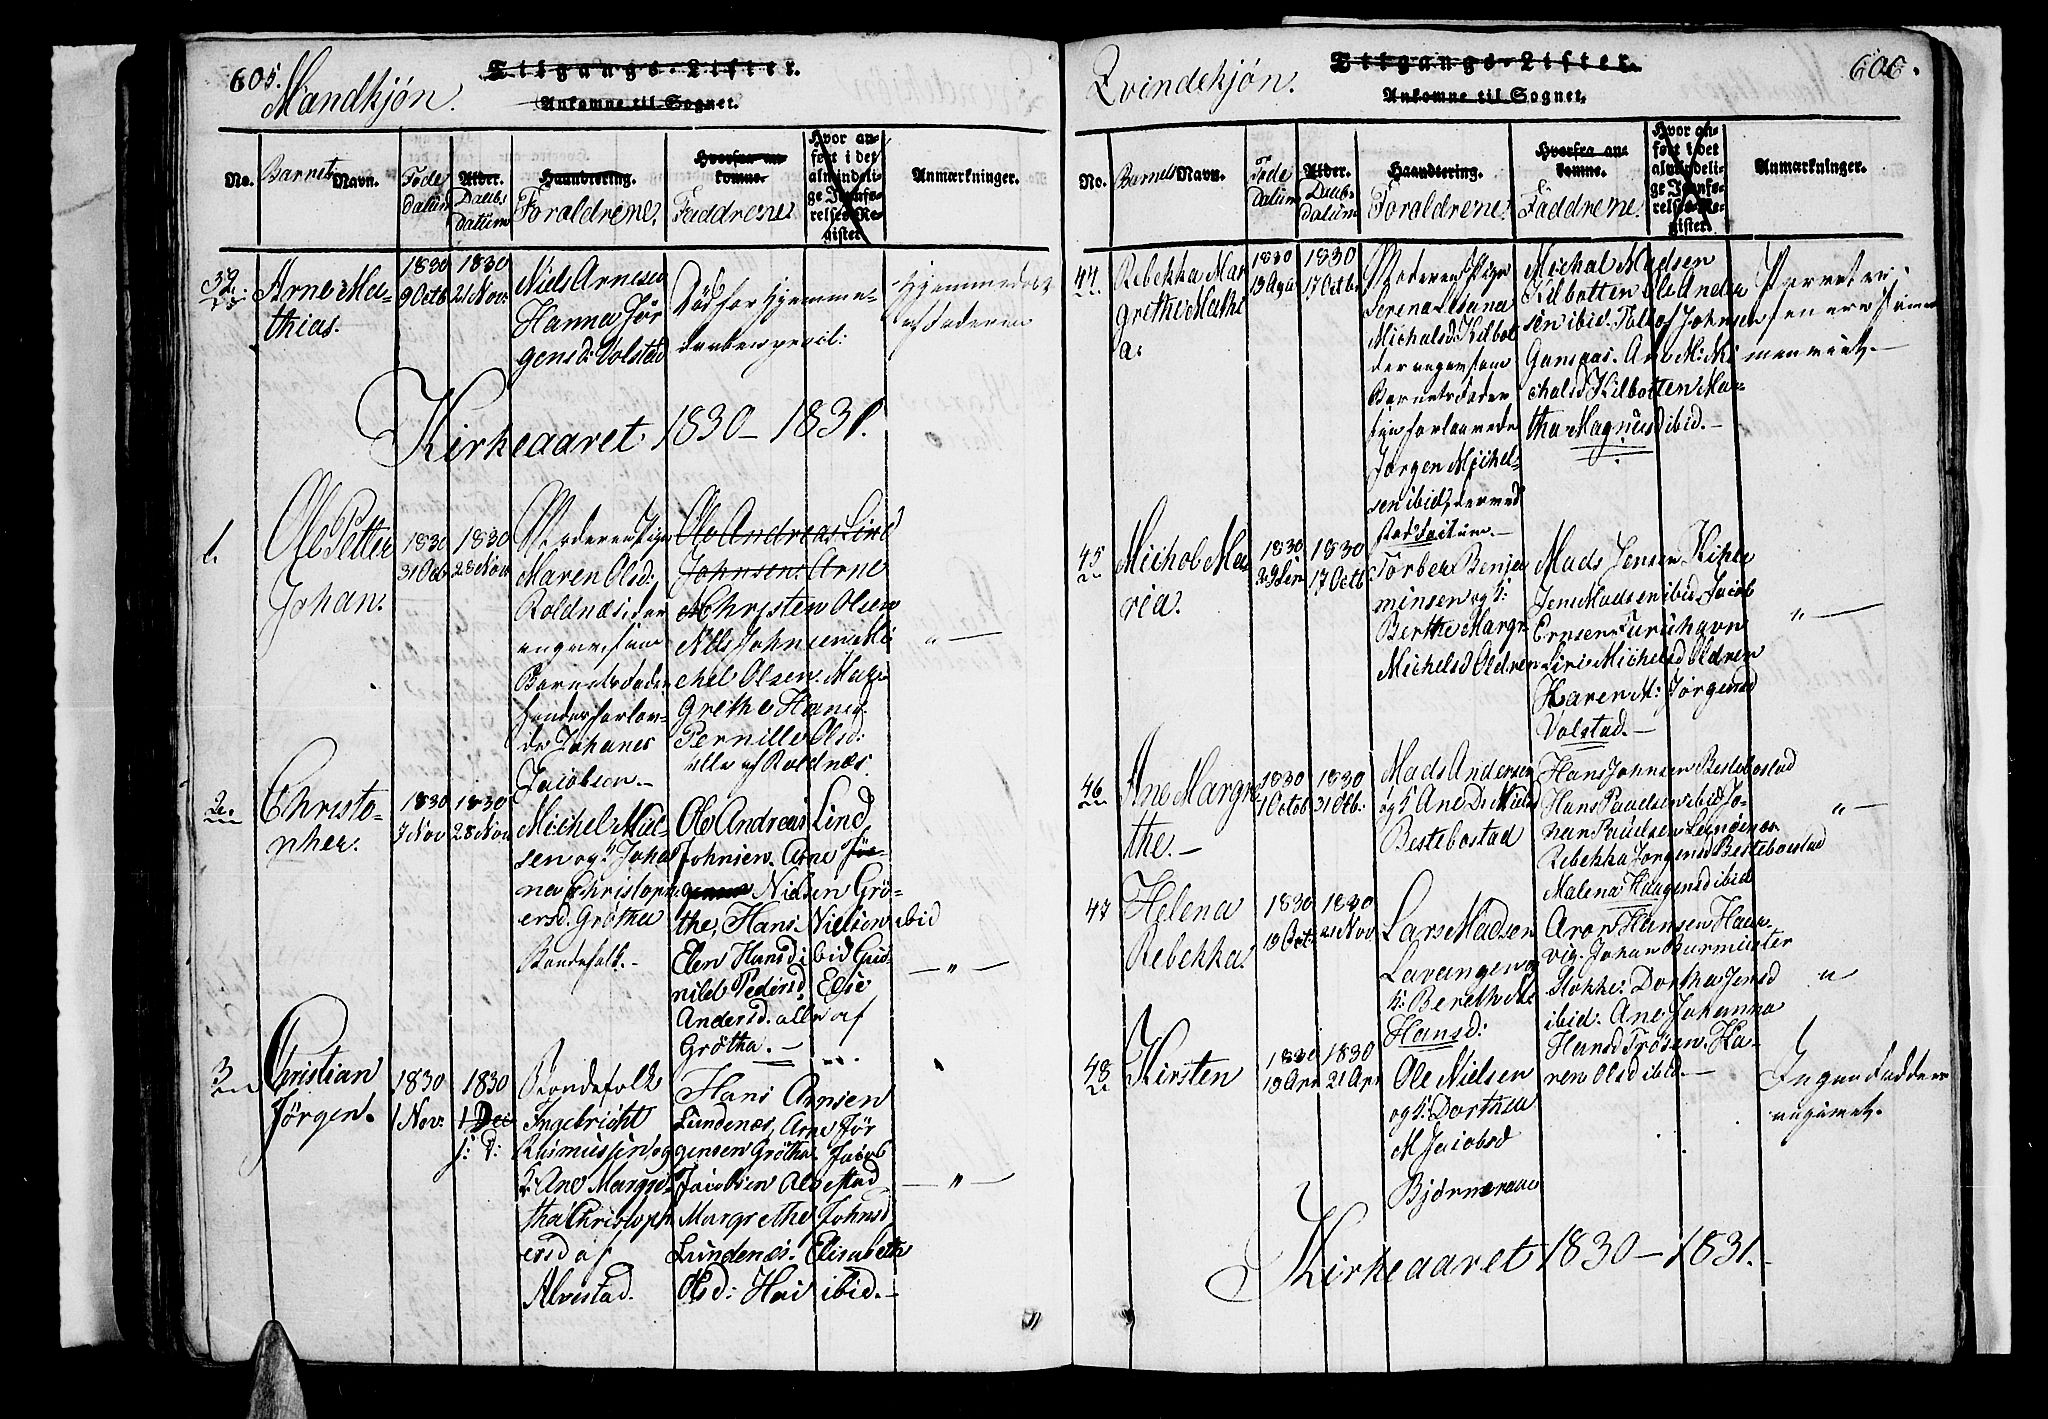 605.
Mandkjón.
Tilgangs-Lister.
Ankomne til Sognet.
No.
Barnets Navn.
Føde datum
Alder. Daabs datum
Haandtering. Forældrene.
Hvorfra ankomne. Faddrene.
Hvor anført i det almindelige Jevnførelses-Register
Anmærkninger.
39.
Arne Mathias.
1830
9 Octb
1830
21 Nov:
Niels Arnesen
Hanna Jørgensd: Volstad
Død før Hjemme-
Hjemmedøbt
af Faderen
Kirkeaaret 1830–1831.
1.
Ole Petter
Johan.
1830
31 Octb
1830
28 Nov
Moderen Pige
Maren Olsd:
Roldnæs, der
angav som
Barnets Fader
hendes forlov-
de Johanes
Jacobsen.–
Ole Andreas Lind
Johnsen. Arne
Christen Olsen
Nils Johnsen Mi
chel Olsen Mar
grethe Hansd.
Pernille Olsd:
alle af Roldnæs.
" —
2.
Christo-
pher.
1830
7 Nov
1830
28 Nov.
Michel Niel-
sen og k. Joha
na Christoph
ersd. Grøtha
Bondefolk.–
Ole Andreas Lind
Johnsen. Arne Jör-
gensen Nielsen Grö-
the, Hans Nielsen ibid
Elen Hansd ibid Gu
nild Pedersd. Elsie
Andersd. alle af
Grøtha.–
— " —
3
Christian
Jørgen.
1830
1 Nov:
1830
1 Dec
Bondefolk
Ingebricht
Rasmussen og
k. Ane Margre
tha Christoph
ersd af
Alvestad.
Hans Arnsen
Lundenæs, Arne Jör
gensen Grötha. Jacob
Jacobsen Alvestad
Margrethe Johnsd
Lundenæs. Elisabeth
Olsd: Hai ibid.–
— " —
Qvindekjón.
Tilgangs-Lister.
Ankomne til Sognet.
606.
No.
Barnets Navn.
Føde datum
Alder. Daabs datum
Haandtering. Forældrene.
Hvorfra ankomne. Faddrene.
Hvor anført i det almindelige Jevnførelses-Register
Anmærkninger.
44
Rebekka Mar
grethe Marthe
a.
1830
19 Agu
1830
17 Octb
Moderen Pige
Serena Susana
Michalsd: Kilbot
der angav som
Barnets Fader
sin forlovede
Jørgen Michel-
sen ibid,
Michal Madsen
Kilbotten Ole Ander
sen ibid. Toleof Johnsen
Gansaas. Ane M. Mi
chalsd Kilbotten Ma-
tha Magnusd ibid.–
45
Michol Ma
ria.
1830
1830
17 Octb
Torber Benja
minsen og k:
Berthe Margr
Michelsd Oldren
Mads Jensen Kihle
Jens Madsen ibid. Jacob
Ernsen Furuhavn
Siri Michelsd Oldren
Karen M: Jørgensd
Volstad.–
" —
46
Ane Margre
the.–
1830
1 Octob
1830
31 Otb:
Mads Andersen
og k Ane D: Nielsd
Bestebostad
Hans Johnsen Bestebostad
Hans Paulsen ibid. Jo-
han Paulsen
Rebekka Jorgensd Bestebostad
Malena Haagensd ibid
" —
47
Helena
Rebekka.
1830
19 Oct.
1830
21 Nov
Lars Madsen
Lavangen og
k: Bereth M
Hansd:
Aron Hansen Haar-
vig. Johan Burmester
Stokke. Dorthea Jensd
ibid. Ane Johanna
Hansd Trøsen. Ka-
ren Olsd ibid.–
"
48
Kirsten
1830
19 Apr
1830
21 Apr
Ole Nielsen
og k: Dorthea
M Jacobsd
Bjørneraae
Ingen Faddere
angivet.
Kirkeaaret 1830–1831.